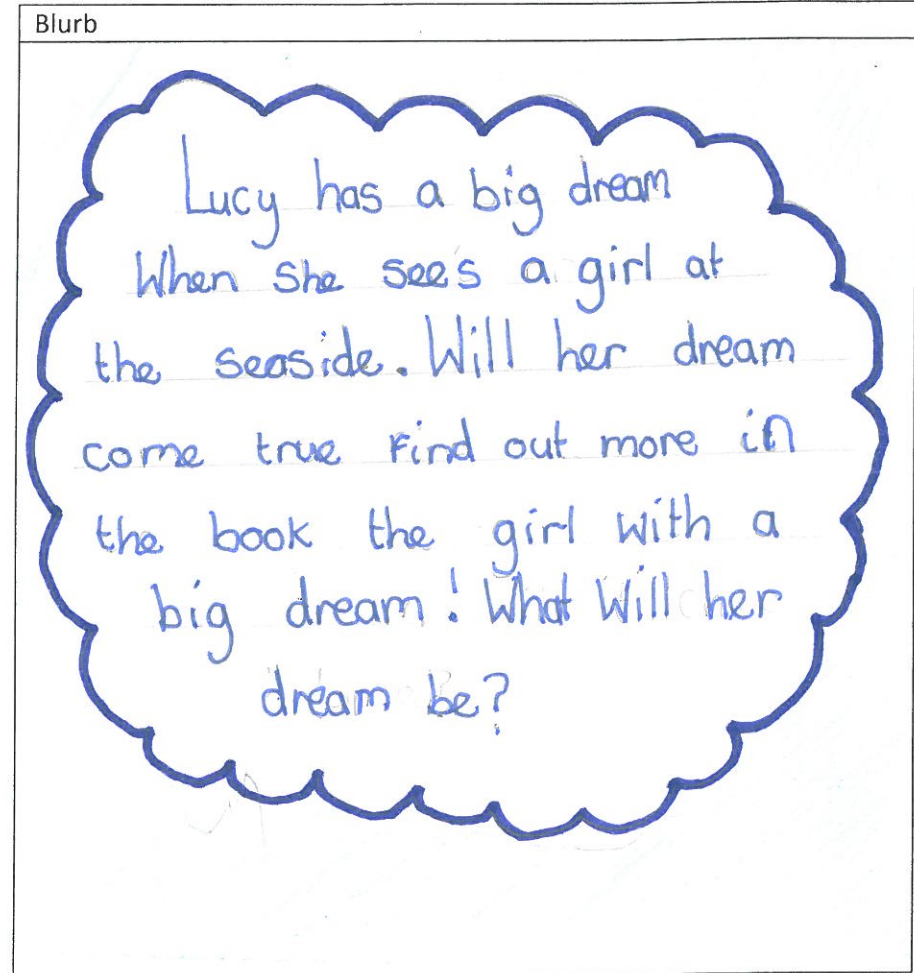 Blurb
Lucy has a big dream
When she sees a girl at
the seaside. Will her dream
come true Find out more in
the book the girl with a
big dream! What Will her
dream be?